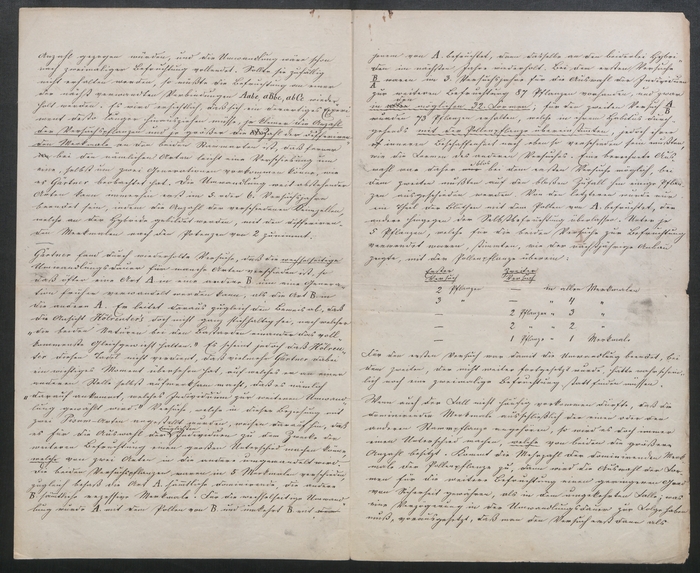 Anzahl gezogen würden, und die Umwandlung wäre schon
nach zweimaliger Befruchtung vollendet. Sollte sie zufällig
nicht erhalten werden, so müßte die Befruchtung an einer
der nächst verwandten Verbindungen Aabc, aBbc, abCc wieder-
holt werden. Es wird ersichtlich, daß sich ein derartiges Experi-
ment desto länger hinausziehen müsse, je kleiner die Anzahl
der Versuchspflanzen und je größer die Anzahl der differirenden
den Merkmale an den beiden Stammarten ist, daß ferner
bei den nämlichen Arten leicht eine Verschiebung um
eine, selbst um zwei Generationen vorkommen könne, wie
es Gärtner beobachtet hat. Die Umwandlung weit abstehender
Arten kann immerhin erst im 5. oder 6. Versuchsjahre
beendet sein, indem die Anzahl der verschiedenen Keimzellen,
welche an der Hybride gebildet werden, mit den differiren-
den Merkmalen nach der Potenz von 2 zunimmt.
Gärtner fand durch wiederholte Versuche, daß die wechselseitige
Umwandlungsdauer für manche Arten verschieden ist, so
daß öfter eine Art A in eine andere B um eine Genera-
tion früher verwandelt werden kann, als die Art B in
die andere A. Er leitet daraus zugleich den Beweis ab, daß
die Ansicht Kölreuters doch nicht ganz stichhältig sei, nach welcher
„die beiden Naturen bei den Bastarden einander das voll-
kommenste Gleichgewicht halten." Es scheint jedoch, daß Kölreu-
ter diesen Tadel nicht verdient, daß vielmehr Gärtner dabei
ein wichtiges Moment übersehen hat, auf welches er an einer
anderen Stelle selbst aufmerksam macht, daß es nämlich
„darauf ankommt, welches Individuum zur weiteren Umwand-
lung gewählt wird". Versuche, welche in dieser Beziehung mit
zwei Pisum-Arten angestellt wurden, weisen darauf hin, daß
es für die Auswahl der Individuen zu dem Zwecke der
weiteren Befruchtung einen großen Unterschied machen könne,
welche von zwei Arten in die andere umgewandelt wird.
Die beiden Versuchspflanzen waren in 5 Merkmalen verschieden,
zugleich besaß die Art A sämmtliche dominirende, die andere
B sämmtliche recessive Merkmale. Für die wechselseitige Umwand-
lung wurde A mit dem Pollen von B und umgekehrt B mit
jenem von A befruchtet, dann dasselbe an den beiderlei Hybri-
den im nächsten Jahre wiederholt. Bei dem ersten Versuche
B/A waren im 3. Versuchsjahre für die Auswahl der Individuen
zur weiteren Befruchtung 87 Pflanzen vorhanden, und zwar
in den möglichen 32 Formen; für den zweiten Versuch A/B
wurden 73 Pflanzen erhalten, welche in ihrem Habitus durch-
gehends mit der Pollenpflanze übereinstimmten, jedoch ihrer
inneren Beschaffenheit nach eben so verschieden sein mußten,
wie die Formen des anderen Versuches. Eine berechnete Aus-
wahl war daher bloß bei dem ersten Versuche möglich, bei
dem zweiten mußten auf den bloßen Zufall hin einige Pflan-
zen ausgeschieden werden. Von den letzteren wurde nur
ein Theil der Blüthen mit dem Pollen von A befruchtet, der
andere hingegen der Selbstbefruchtung überlassen. Unter je
5 Pflanzen, welche für die beiden Versuche zur Befruchtung
verwendet waren, stimmten, wie der nächstjährige Anbau
zeigte, mit der Pollenpflanze überein:
Erster Versuch Zweiter Versuch
2 Pflanzen — in allen Merkmalen
3 " — " 4 "
— 2 Pflanzen " 3 "
— 2 " " 2 "
— 1 Pflanze " 1 Merkmale
Für den ersten Versuch war damit die Umwandlung beendet, bei
dem zweiten, der nicht weiter fortgesetzt wurde, hätte wahrschein-
lich noch eine zweimalige Befruchtung stattfinden müssen.
Wenn auch der Fall nicht häufig vorkommen dürfte, daß die
dominirenden Merkmale ausschließlich der einen oder der
anderen Stammpflanze angehören, so wird es doch immer
einen Unterschied machen, welche von beiden die größere
Anzahl besitzt. Kommt die Mehrzahl der dominirenden Merk-
male der Pollenpflanze zu, dann wird die Auswahl der For-
men für die weitere Befruchtung einen geringeren Grad
von Sicherheit gewähren, als in dem umgekehrten Falle, was
eine Verzögerung in der Umwandlungsdauer zur Folge haben
muß, vorausgesetzt, daß man den Versuch erst dann als